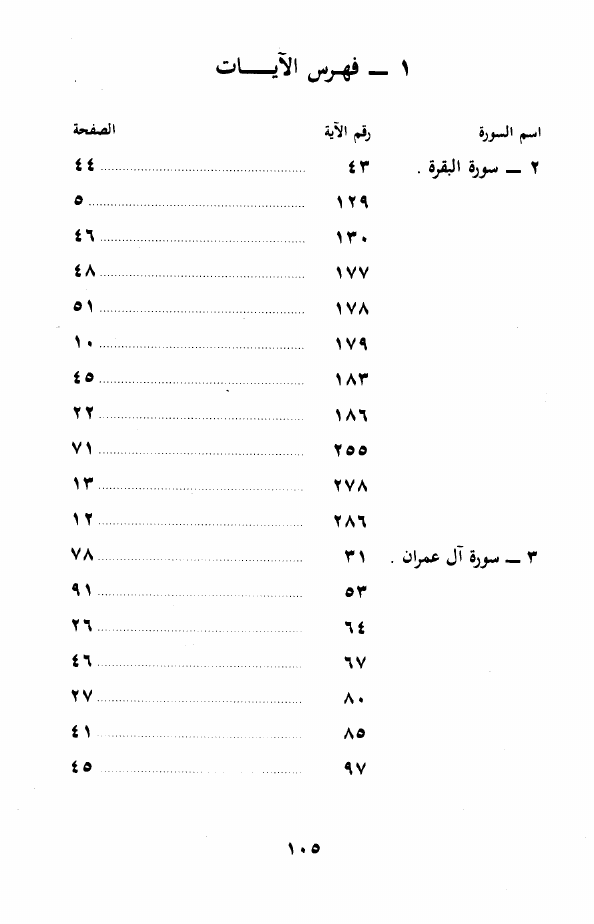 ١ ــ فهرس الآيــات
اسم السورة رقم الآية الصفحة
٢ ــ سورة البقرة . ٤٣ ........ ٤٤
١٢٩ ........ ٥
١٣٠ ........ ٤٦
١٧٧ ........ ٤٨
١٧٨ ........ ٥١
١٧٩ ........ ١٠
١٨٣ ........ ٤٥
١٨٦ ........ ٢٢
٢٥٥ ........ ٧١
٢٧٨ ........ ١٣
٢٨٦ ........ ١٢
٣ ــ سورة آل عمران . ٣١ ........ ٧٨
٥٣ ........ ٩١
٦٤ ........ ٢٦
٦٧ ........ ٤٦
٨٠ ........ ٢٧
٨٥ ........ ٤١
٩٧ ........ ٤٥
١٠٥